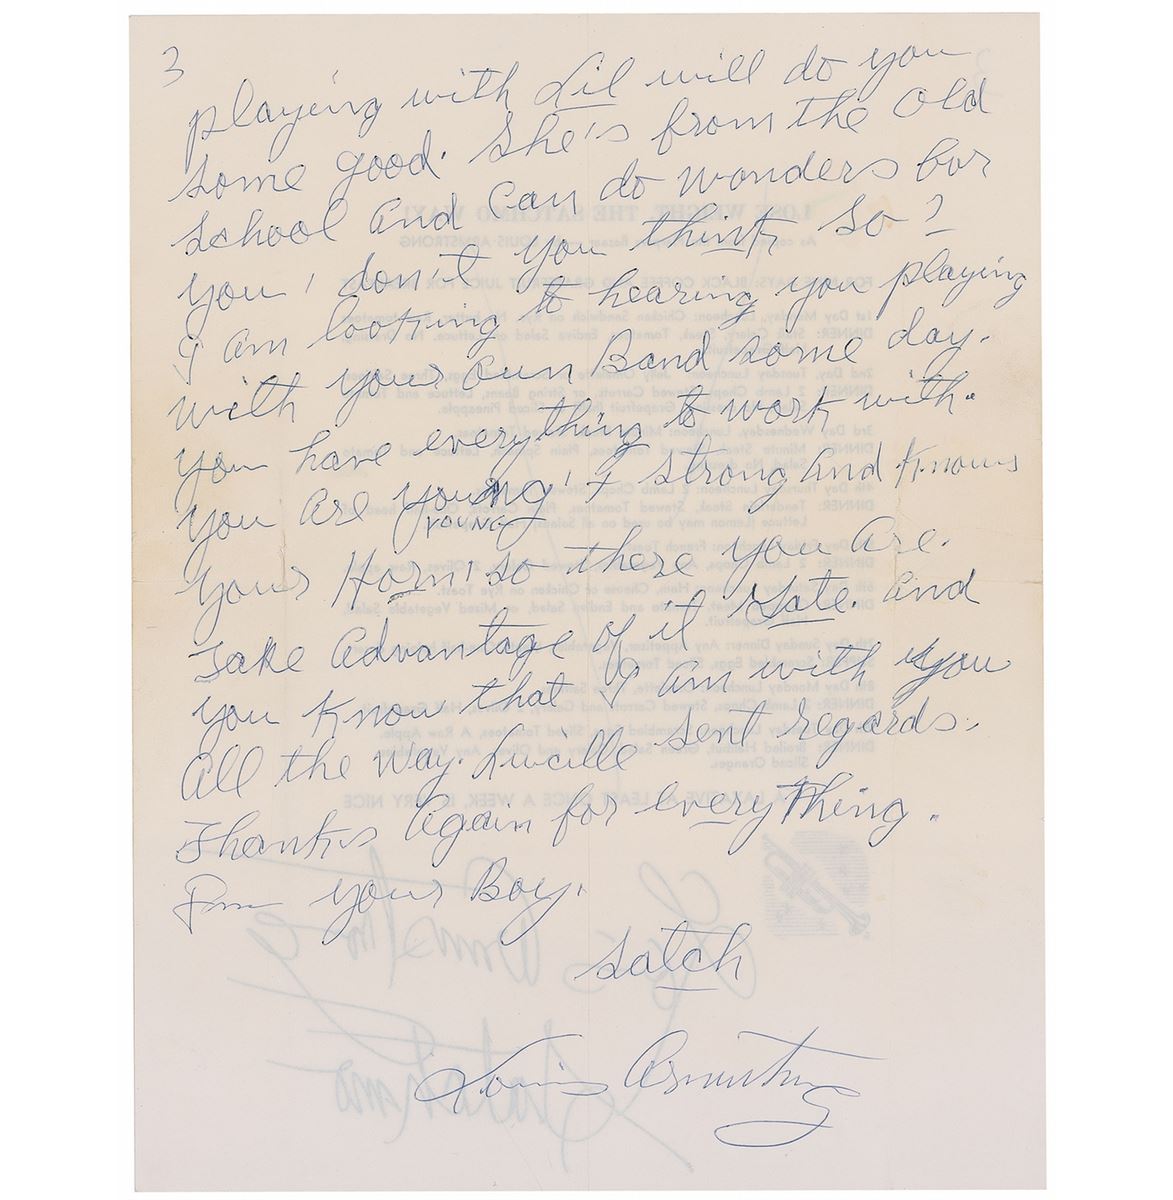 3
playing with Lil will do you
some good. She's from the Old
School and Can do wonders for
you, don't you think so?
I am looking to hearing you playing
with your own Band some day.
You have everything to work with.
You are young' + strong and Knows
YOUNG
your Horn, so there you are.
Take Advantage of it Gate. and
you Know that I am with you
All the Way. Lucille sent regards.
Thanks Again for everything.
From your Boy.
Satch
Louis Armstrong